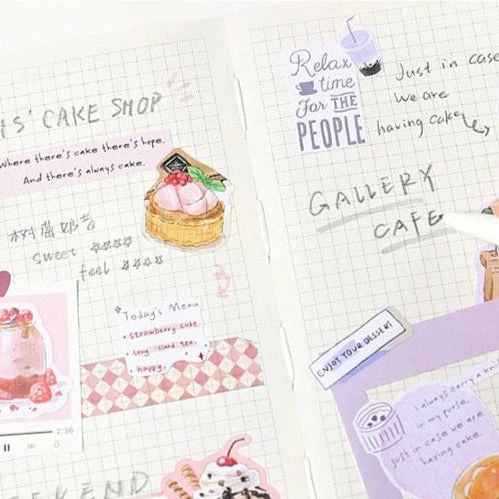 S' CAKE SHOP
Where there's cake there's hope.
And there's always cake.
树莓奶昔
sweet ☆☆☆☆
feel ☆☆☆☆
Today's Menu
• strawberry cake
• long island tea.
• happy.
2:36
EKEND
Relax
time
For THE
PEOPLE
Just in case
We are
having cake
GALLERY
CAFE
ENJOY YOUR DESSERT
I always carry a kni
in my purse,
just in case we are
having cake.